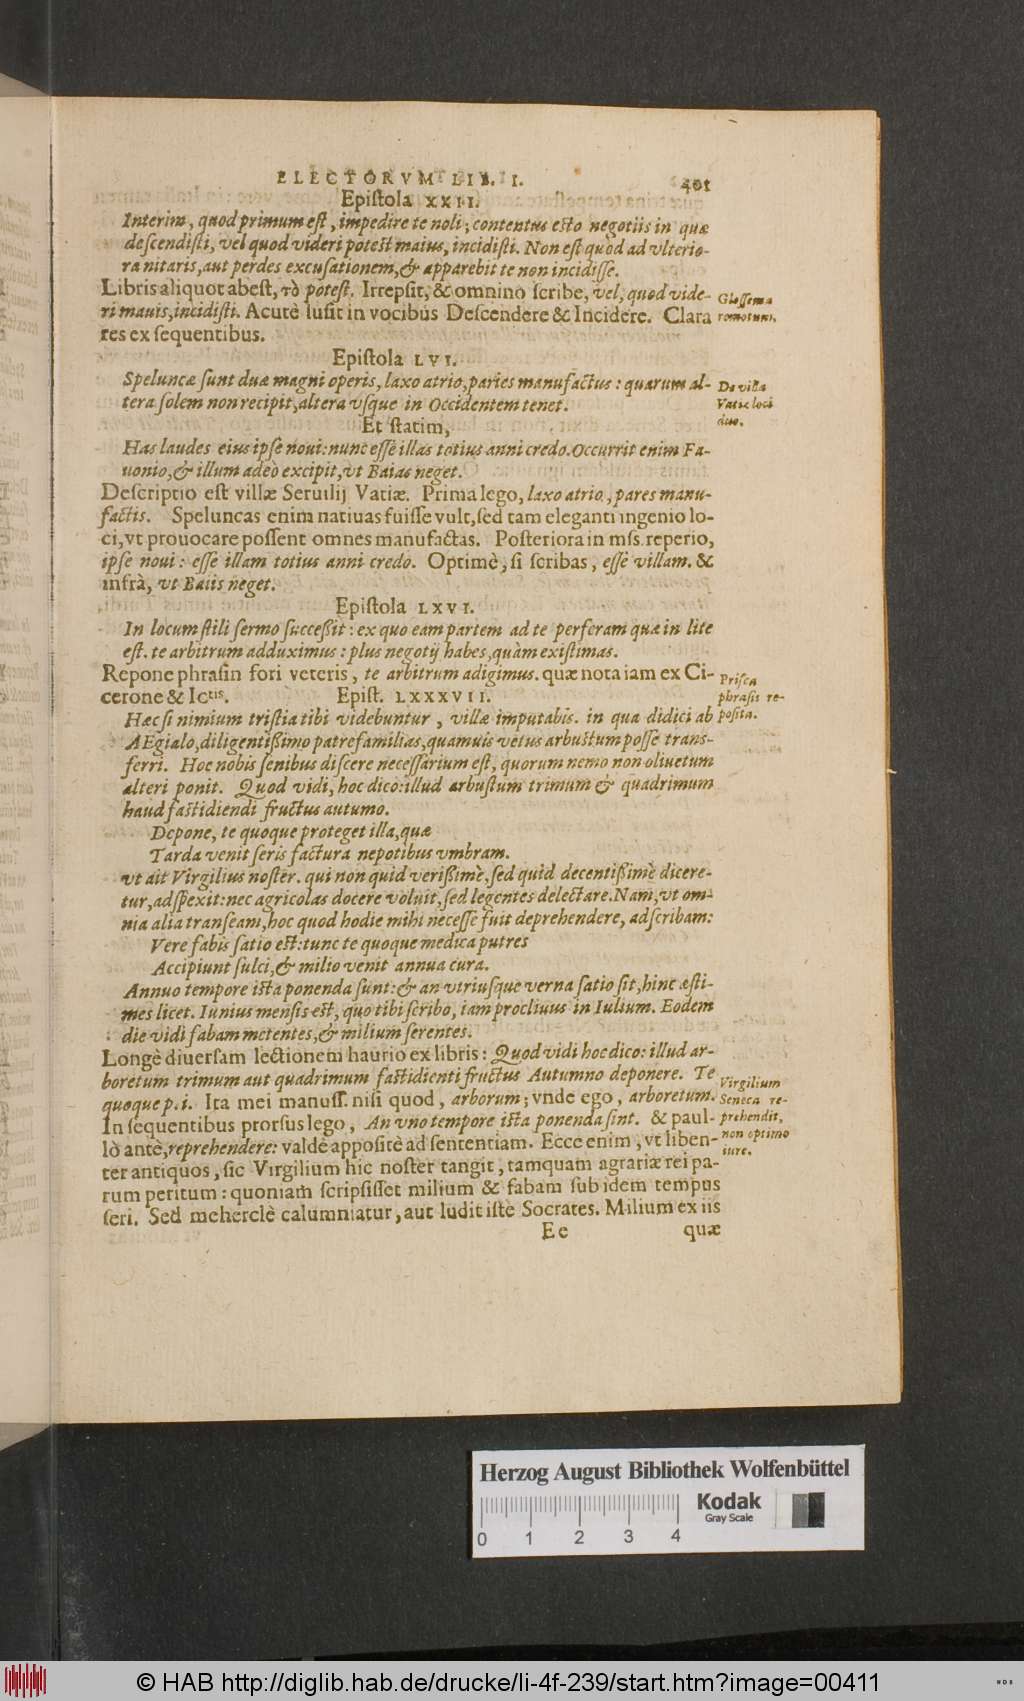 ELECTORVM LIB. I. 401
Epistola XXII.
Interim, quod primum est, impedire te noli; contentus esto negotiis in quæ
descendisti, vel quod videri potest maius, incidisti. Non est quod ad vlterio-
ra nitaris, aut perdes excusationem, & apparebit te non incidisse.
Libris aliquot abest, τὸ potest. Irrepsit, & omnino scribe, vel, quod vide-
ri mauis, incidisti. Acutè lusit in vocibus Descendere & Incidere. Clara
res ex sequentibus.
Glossema
remotum.
Epistola LVI.
Speluncæ sunt duæ magni operis, laxo atrio, paries manufactus: quarum al-
tera solem non recipit, altera vsque in Occidentem tenet.
De villa
Vatiæ loci
duo.
Et statim,
Has laudes eius ipse noui: nunc esse illas totius anni credo. Occurrit enim Fa-
uonio, & illum adeò excipit, vt Baias neget.
Descriptio est villæ Seruilij Vatiæ. Prima lego, laxo atrio, pares manu-
factis. Speluncas enim natiuas fuisse vult, sed tam eleganti ingenio lo-
ci, vt prouocare possent omnes manufactas. Posteriora in mss. reperio,
ipse noui: esse illam totius anni credo. Optimè, si scribas, esse villam. &
infrà, vt Baiis neget.
Epistola LXVI.
In locum stili sermo successit: ex quo eam partem ad te perferam quæ in lite
est. te arbitrum adduximus: plus negotij habes, quàm existimas.
Repone phrasin fori veteris, te arbitrum adigimus. quæ nota iam ex Ci-
cerone & Ictis. Epist. LXXXVII.
Prisca
phrasis re-
posita.
Hæc si nimium tristia tibi videbuntur, villæ imputabis. in qua didici ab
AEgialo, diligentissimo patrefamilias, quamuis vetus arbustum posse trans-
ferri. Hoc nobis senibus discere necessarium est, quorum nemo non oliuetum
alteri ponit. Quod vidi, hoc dico: illud arbustum trimum & quadrimum
haud fastidiendi fructus autumo.
Depone, te quoque proteget illa, quæ
Tarda venit seris factura nepotibus vmbram.
vt ait Virgilius noster. qui non quid verissimè, sed quid decentissimè dicere-
tur, adspexit: nec agricolas docere voluit, sed legentes delectare. Nam, vt om-
nia alia transeam, hoc quod hodie mihi necesse fuit deprehendere, adscribam:
Vere fabis satio est: tunc te quoque medica putres
Accipiunt sulci, & milio venit annua cura.
Annuo tempore ista ponenda sunt: & an vtriusque verna satio sit, hinc æsti-
mes licet. Iunius mensis est, quo tibi scribo, iam procliuus in Iulium. Eodem
die vidi fabam metentes, & milium serentes.
Longè diuersam lectionem haurio ex libris: Quod vidi hoc dico: illud ar-
boretum trimum aut quadrimum fastidienti fructus Autumno deponere. Te
quoque p. i. Ita mei manuss. nisi quod, arborum; vnde ego, arboretum.
In sequentibus prorsus lego, An vno tempore ista ponenda sint. & paul-
lò antè, reprehendere: valdè appositè ad sententiam. Ecce enim, vt liben-
ter antiquos, sic Virgilium hic noster tangit, tamquam agrariæ rei pa-
rum peritum: quoniam scripsisset milium & fabam sub idem tempus
seri. Sed meherclè calumniatur, aut ludit iste Socrates. Milium ex iis
Virgilium
Seneca re-
prehendit,
non optimo
iure.
Ee quæ
Herzog August Bibliothek Wolfenbüttel
0 1 2 3 4
Kodak
Gray Scale
© HAB http://diglib.hab.de/drucke/li-4f-239/start.htm?image=00411